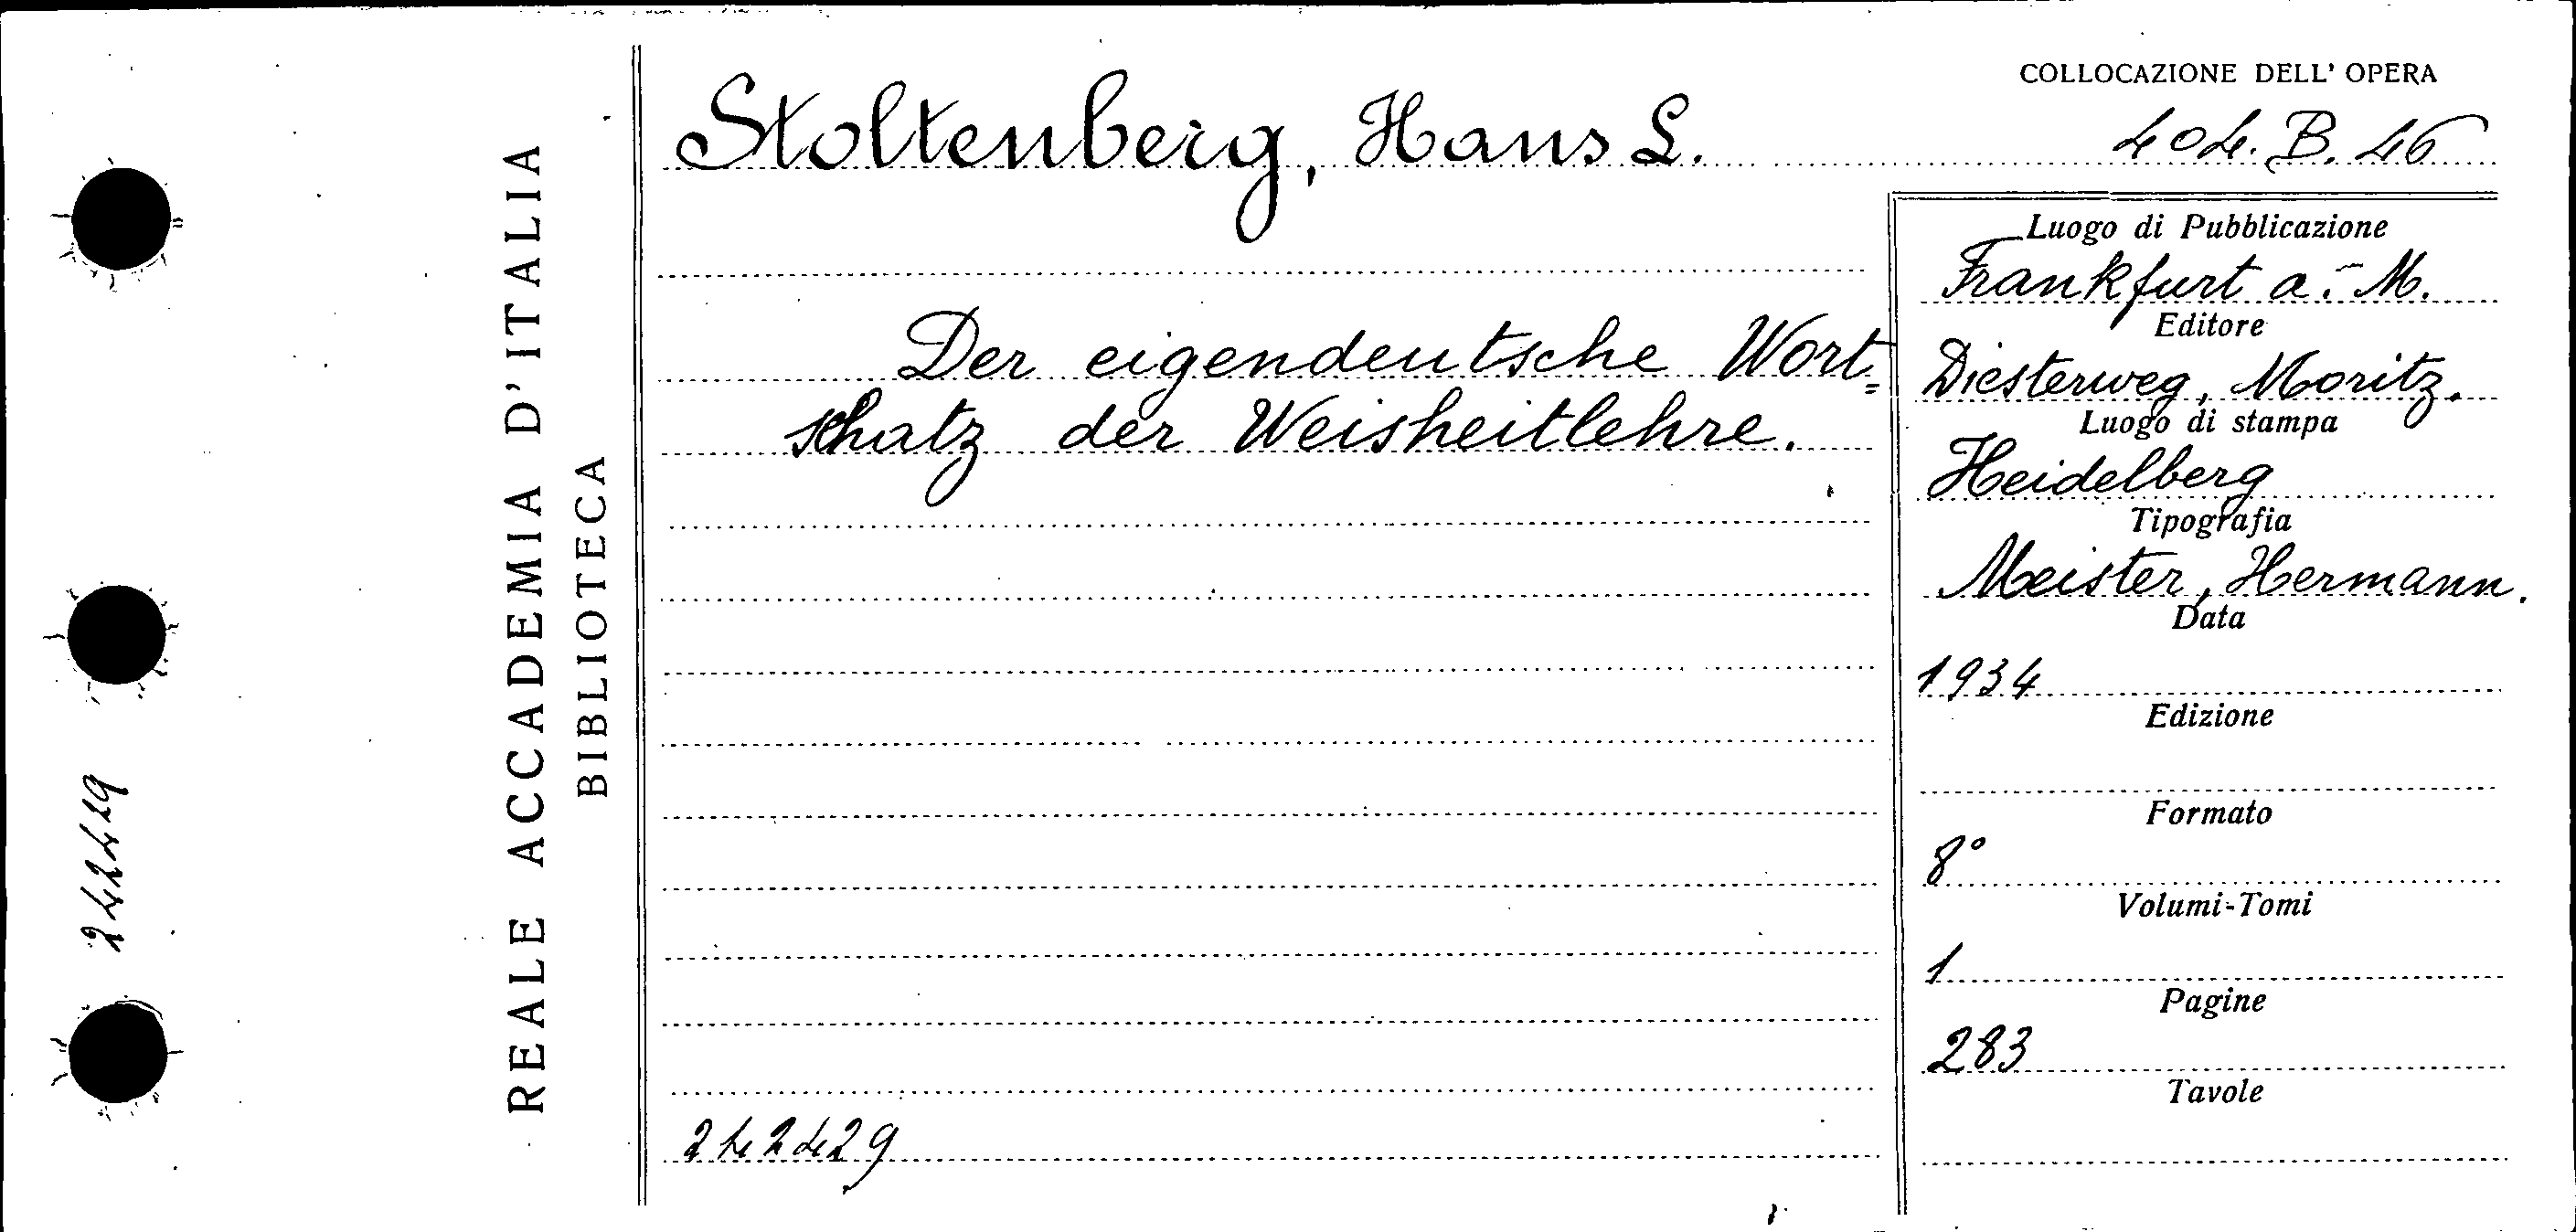 COLLOCAZIONE DELL' OPERA
Stoltenberg, Hans L.
404. B. 46
REALE ACCADEMIA D'ITALIA
BIBLIOTECA
242429
Der eigendeutsche Wort=
schatz der Weisheitlehre.
242429
Luogo di Pubblicazione
Frankfurt a. M.
Editore
Diesterweg, Moritz.
Luogo di stampa
Heidelberg
Tipografia
Meister, Hermann.
Data
1934
Edizione
Formato
8°
Volumi-Tomi
1
Pagine
283
Tavole